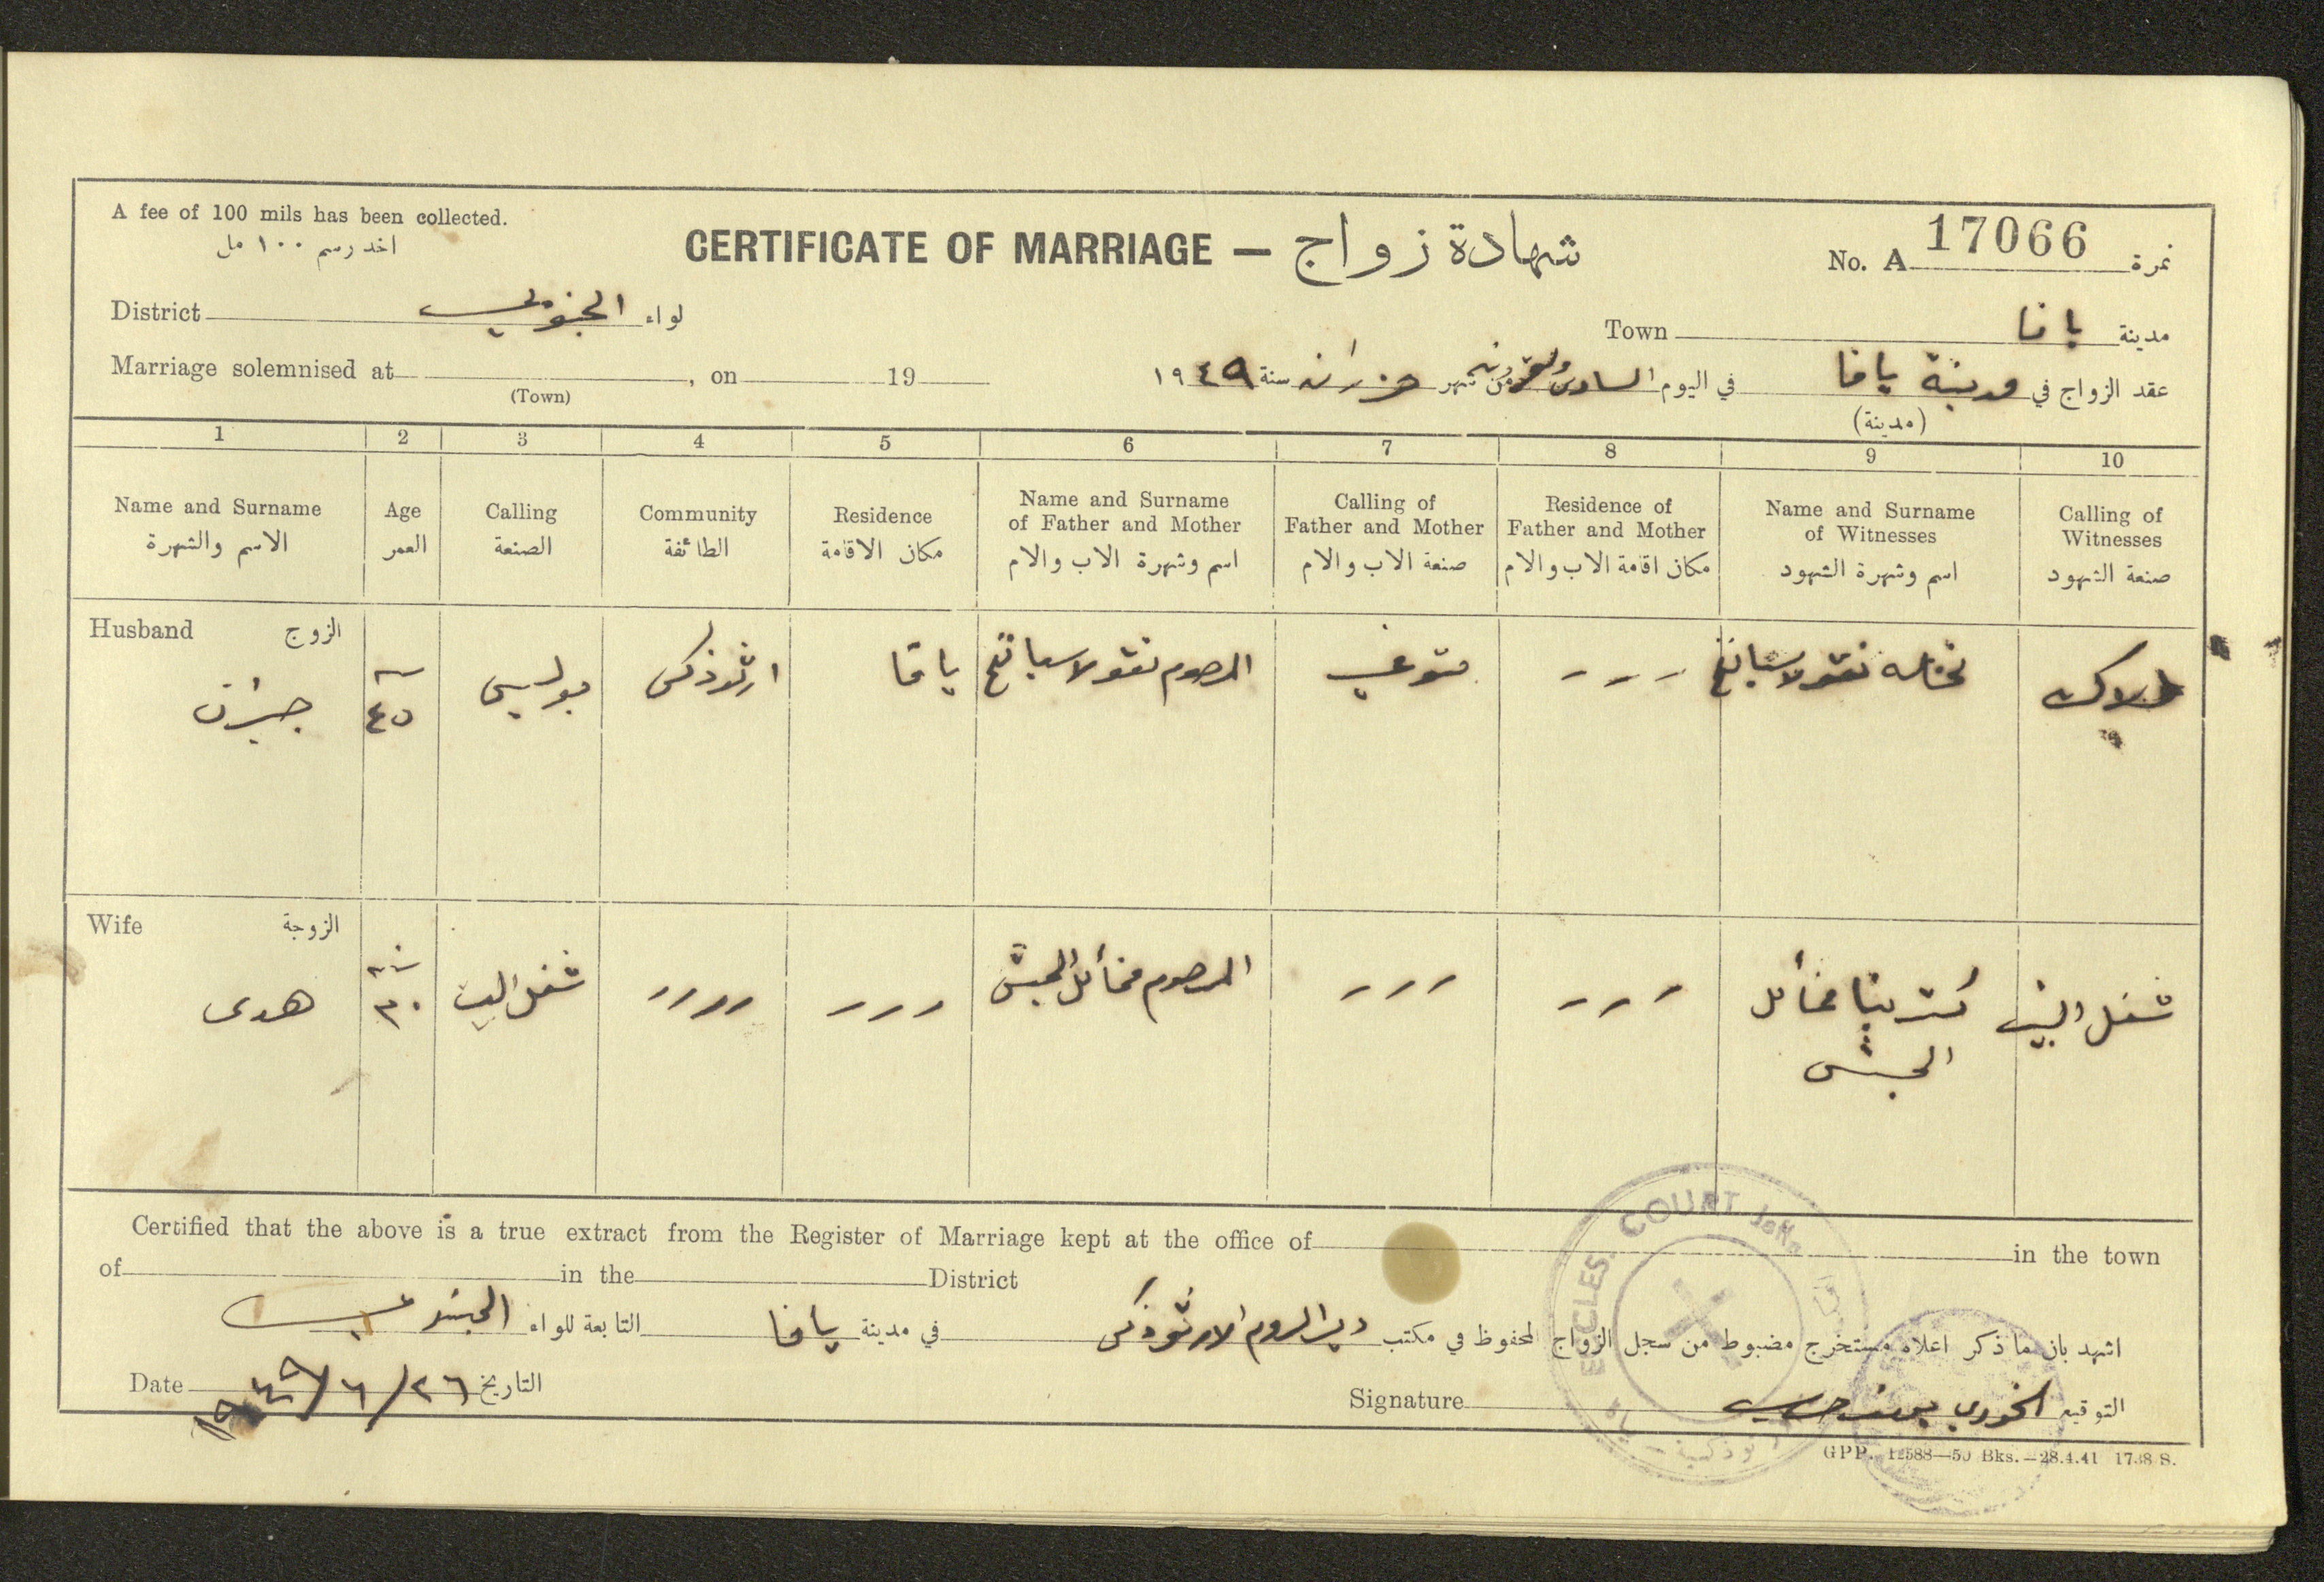 A fee of 100 mils has been collected.
اخد رسم ١٠٠ مل
CERTIFICATE OF MARRIAGE — شهادة زواج
No. A 17066 نمرة
District الجنوبي لواء
Town يافا مدينة
Marriage solemnised at , on 19
(Town)
عقد الزواج في مدينة يافا في اليوم السادس والعشرون من شهر حزيران سنة ١٩٤٩
(مدينة)
1 2 3 4 5 6 7 8 9 10
Name and Surname
الاسم والشهرة
Age
العمر
Calling
الصنعة
Community
الطائفة
Residence
مكان الاقامة
Name and Surname
of Father and Mother
اسم وشهرة الاب والام
Calling of
Father and Mother
صنعة الاب والام
Residence of
Father and Mother
مكان اقامة الاب والام
Name and Surname
of Witnesses
اسم وشهرة الشهود
Calling of
Witnesses
صنعة الشهود
Husband الزوج
جبران
٤٥
بوليس
ارثوذكسي
يافا
المرحوم نقولا
متوفي
نخله نقولا
ملاك
Wife الزوجة
هدى
٣٠
شغل البيت
المرحوم مخائل الحبش
كترينا مخائل
الحبش
شغل البيت
Certified that the above is a true extract from the Register of Marriage kept at the office of in the town
of in the District
اشهد بان ما ذكر اعلاه مستخرج مضبوط من سجل الزواج المحفوظ في مكتب دير الروم الارثوذكس في مدينة يافا التابعة للواء الجنوبي
Date ٢٦/٦/١٩٤٩ التاريخ
Signature الخوري التوقيع
ECCLES. COURT Jaffa
GPP. 12588—50 Bks.—28.4.41 1738 S.